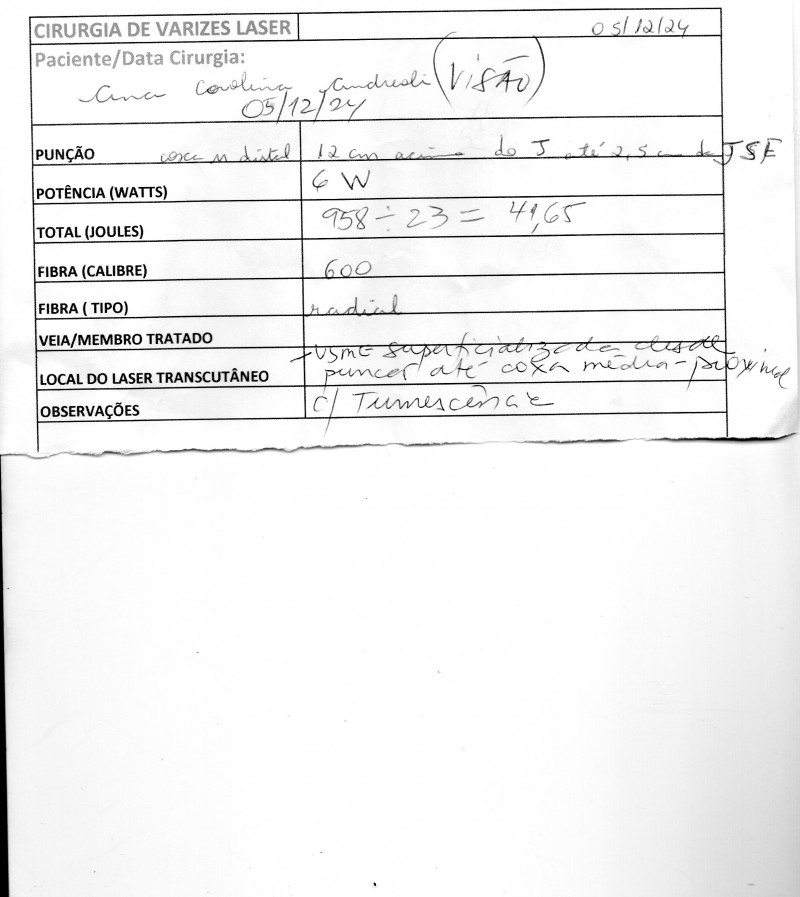 CIRURGIA DE VARIZES LASER 05/12/24
Paciente/Data Cirurgia:
Ana Carolina Andreoli (VISÃO)
05/12/24
PUNÇÃO coxa distal 12 cm acima do J até 2,5 cm da JSF
POTÊNCIA (WATTS) 6 W
TOTAL (JOULES) 958 ÷ 23 = 41,65
FIBRA (CALIBRE) 600
FIBRA ( TIPO) radial
VEIA/MEMBRO TRATADO
- VSME superficializada desde
LOCAL DO LASER TRANSCUTÂNEO punção até coxa média-proximal
OBSERVAÇÕES c/ Tumescência